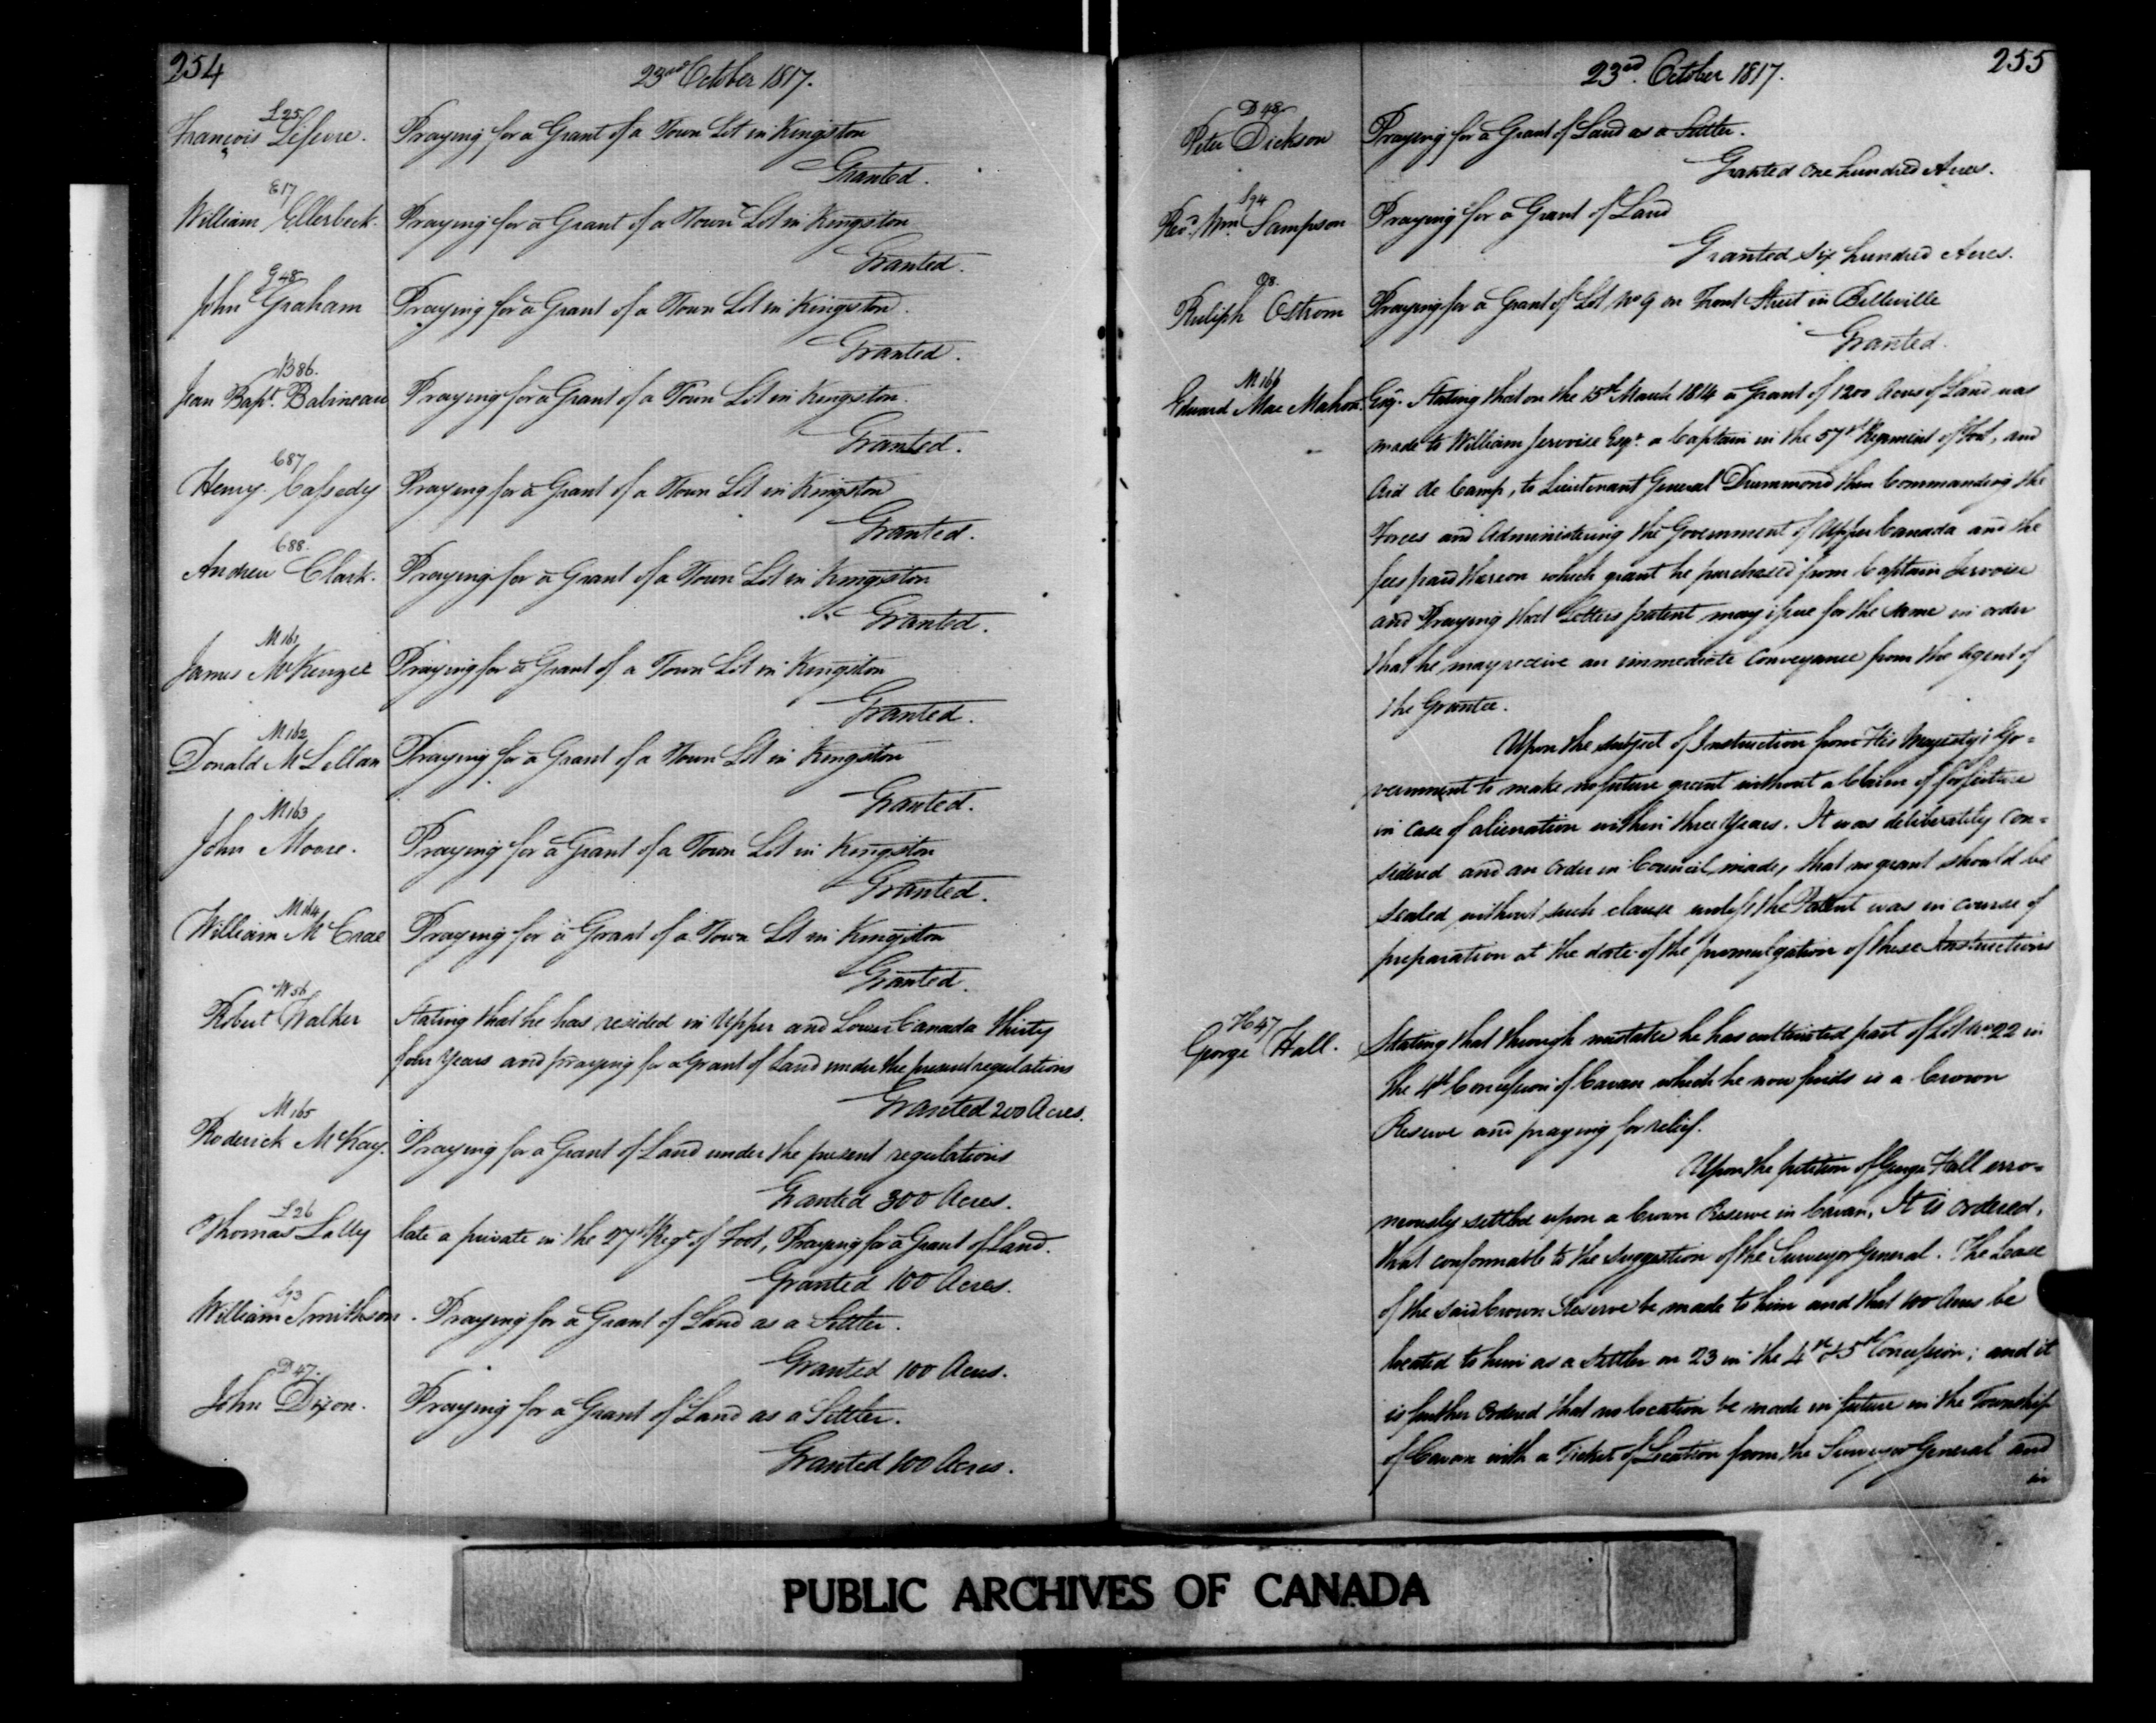 254
23rd October 1817.
L 25
François Lefevre. Praying for a Grant of a Town Lot in Kingston
Granted.
E 17
William Ellerbeck. Praying for a Grant of a Town Lot in Kingston
Granted.
G 48
John Graham Praying for a Grant of a Town Lot in Kingston.
Granted.
B 86.
Jean Bapt. Babineau Praying for a Grant of a Town Lot in Kingston.
Granted.
C 87
Henry Cassedy Praying for a Grant of a Town Lot in Kingston
Granted.
C 88.
Andrew Clark. Praying for a Grant of a Town Lot in Kingston
Granted.
M 161
James McKenzie Praying for a Grant of a Town Lot in Kingston
Granted.
M 162
Donald McLellan Praying for a Grant of a Town Lot in Kingston
Granted.
M 163
John Moore. Praying for a Grant of a Town Lot in Kingston
Granted.
M 164
William McCrae Praying for a Grant of a Town Lot in Kingston
Granted.
W 56
Robert Walker Stating that he has resided in Upper and Lower Canada thirty
four Years and praying for a Grant of Land under the present regulations
Granted 200 Acres.
M 165
Roderick McKay. Praying for a Grant of Land under the present regulations
Granted 300 Acres.
L 26
Thomas Lally late a private in the 27th Regt of Foot, Praying for a Grant of Land.
Granted 100 Acres.
S 93
William Smithson. Praying for a Grant of Land as a Settler.
Granted 100 Acres.
D 47.
John Dixon. Praying for a Grant of Land as a Settler.
Granted 100 Acres.
255
23rd October 1817.
D 48
Peter Dickson Praying for a Grant of Land as a Settler.
Granted One hundred Acres.
S 94
Revd Wm Sampson Praying for a Grant of Land
Granted Six hundred Acres.
O 8.
Ruliph Ostrom Praying for a Grant of Lot No 9 on Front Street in Belleville
Granted.
M 166
Edward Mac Mahon. Esqr. Stating that on the 15th March 1814 a Grant of 1200 Acres of Land was
made to William Jervoise Esqr. a Captain in the 57th Regiment of Foot, and
Aid de Camp, to Lieutenant General Drummond then Commanding the
Forces and Administering the Government of Upper Canada and the
fees paid thereon which grant he purchased from Captain Jervoise
and Praying that Letters patent may issue for the same in order
that he may receive an immediate Conveyance from the Agent of
the Grantee.
Upon the subject of Instruction from His Majesty's Go=
vernment to make no future grant without a Claim of forfeiture
in case of alienation within three Years. It was deliberately Con=
sidered and an Order in Council made, that no grant should be
sealed without such clause unless the Patent was in course of
preparation at the date of the promulgation of these Instructions
H 47
George Hall. Stating that through mistake he has cultivated part of Lot No 22 in
the 4th Concession of Cavan which he now finds is a Crown
Reserve and praying for relief.
Upon the petition of George Hall erro=
neously settled upon a Crown Reserve in Cavan, It is Ordered,
that conformable to the suggestion of the Surveyor General. The Lease
of the said Crown Reserve be made to him and that 100 Acres be
located to him as a Settler on 23 in the 4th & 5th Concession; and it
is further Ordered that no location be made in future in the Township
of Cavan with a Ticket of Location from the Surveyor General and
in
PUBLIC ARCHIVES OF CANADA